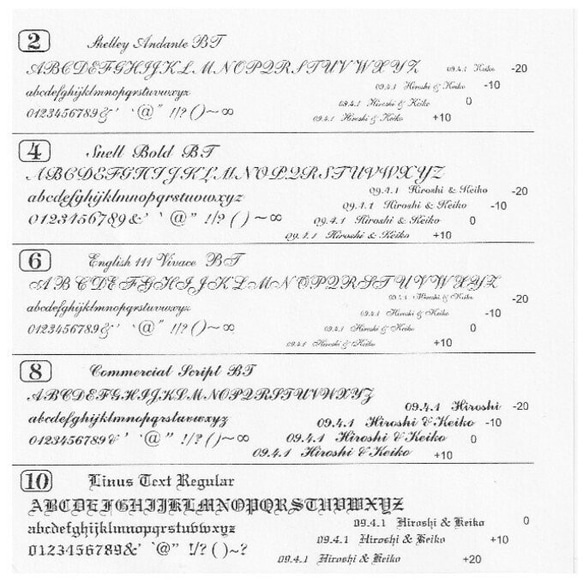 2 Shelley Andante BT
ABCDEFGHIJKLMNOPQRSTUVWXYZ 09.4.1 Keiko -20
abcdefghijklmnopqrstuvwxyz 09.4.1 Hiroshi & Keiko -10
09.4.1 Hiroshi & Keiko 0
0123456789&' `@" !/? ()~∞ 09.4.1 Hiroshi & Keiko +10
4 Snell Bold BT
ABCDEFGHIJKLMNOPQRSTUVWXYZ
09.4.1 Hiroshi & Keiko -20
abcdefghijklmnopqrstuvwxyz 09.4.1 Hiroshi & Keiko -10
0123456789&' `@" !/? ()~∞ 09.4.1 Hiroshi & Keiko 0
09.4.1 Hiroshi & Keiko +10
6 English 111 Vivace BT
ABCDEFGHIJKLMNOPQRSTUVWXYZ
09.4.1 Hiroshi & Keiko -20
abcdefghijklmnopqrstuvwxyz 09.4.1 Hiroshi & Keiko -10
0123456789&' `@" !/? ()~∞ 09.4.1 Hiroshi & Keiko 0
09.4.1 Hiroshi & Keiko +10
8 Commercial Script BT
ABCDEFGHIJKLMNOPQRSTUVWXYZ
09.4.1 Hiroshi -20
abcdefghijklmnopqrstuvwxyz 09.4.1 Hiroshi & Keiko -10
0123456789&' `@" !/? ()~∞ 09.4.1 Hiroshi & Keiko 0
09.4.1 Hiroshi & Keiko +10
10 Linus Text Regular
ABCDEFGHIJKLMNOPQRSTUVWXYZ
abcdefghijklmnopqrstuvwxyz 09.4.1 Hiroshi & Keiko 0
09.4.1 Hiroshi & Keiko +10
0123456789&' `@" !/? ()~? 09.4.1 Hiroshi & Keiko +20